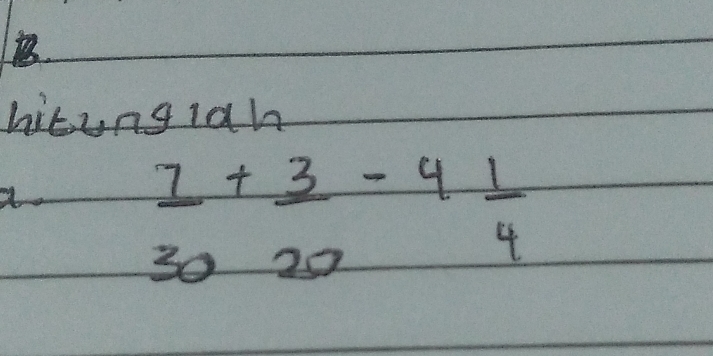 B.
hitunglah
a. 7/30 + 3/20 - 4 1/4